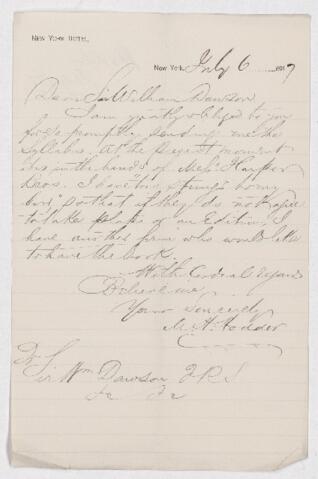 New York Hotel,
New York, July 6 1887
Dear Sir William Dawson
I am greatly obliged to you
for so promptly sending me the
Syllabus. At the present moment
it is in the hands of Messrs Harper
Bros. I have two strings to my
bow so that if they do not agree
to take plates of an Edition I
have another firm who would like
to have the book.
With Cordial regards
Believe me
Yours Sincerely
M. H. Hodder
Sir Wm Dawson F.R.S